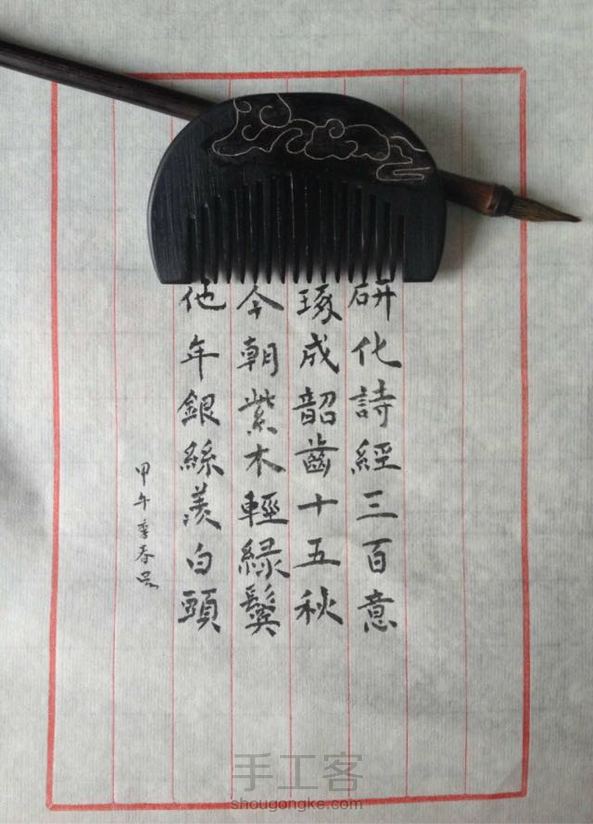 研化詩經三百意
琢成韶齒十五秋
今朝紫木輕綠鬓
他年銀絲羨白頭
甲午季春
手工客
shougongke.com